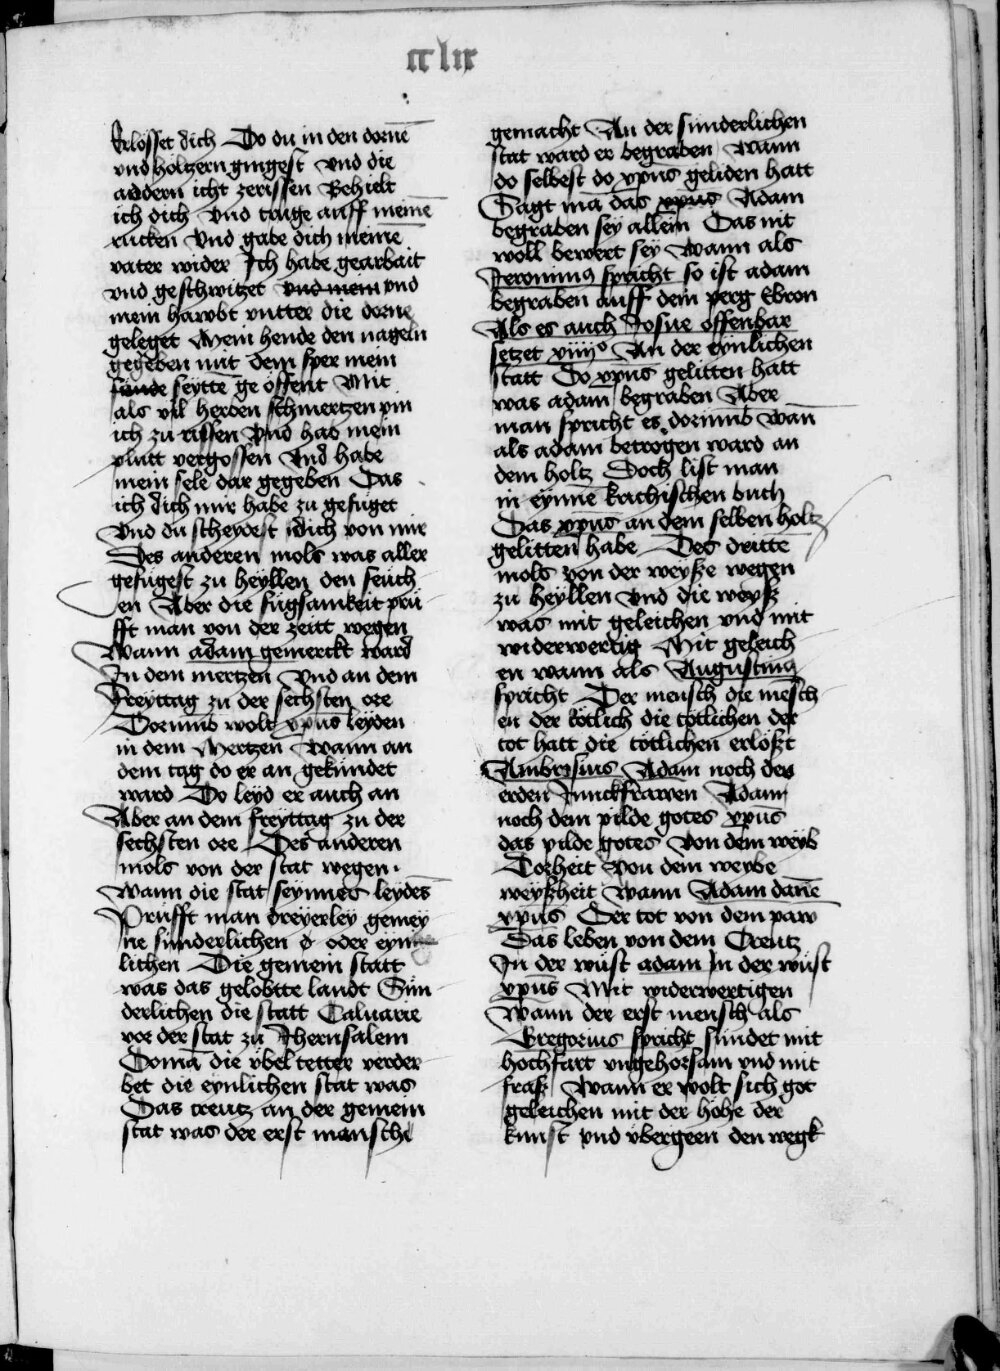 cclix
Erlösset dich Do du in den dorne͞
vnd höltzern gingest vnd die
addern icht zerissen Behielt
ich dich vnd truge auff meine͞
rucken Vnd gabe dich meine͞
vater wider Ich habe gearbait
vnd geschwitzet vnd mein vnd
mein hawbt vntter die dorne
geleget Mein hende den nageln
gegeben mit dem sper mein
sünde seytte͞ ge öffent Mit
als vil herben schmertzen pin
ich zu rissen Vnd hab mein
plutt vergossen Vnd habe
mein sele dar gegeben Das
ich dich mir habe zu gefüget
Vnd du scheydest dich von mir
Des anderen mols was aller
gefügest zu heyllen den seüch
en Aber die fügsamkeit prü
fft man von der zeitt wegen
Wann adam gemerckt ward
In dem mertzen Vnd an dem
Freyttag zu der sechsten ore
Dorumb wolt xp̄us leyden
in dem Mertzen Wann an
dem tag do er an gekündet
ward Do leyd er auch an
Aber an dem freyttag zu der
sechsten ore Des anderen
mols von der stat wegen
Wann die stat seynnes leydes
Prüfft man dreyerley gemey
ne sünderlichen oder eyn
lichen Die gemein statt
was das gelobtte landt Sün
derlichen die statt Caluarie
vor der stat zu Jherusalem
Doma͞ die vbel tetter verder
bet die eynlichen stat was
Das creutz an der gemein
stat was der erst mensche
gemacht An der sünderlichen
stat ward er begraben Wann
do selbest do xp̄us geliden hatt
Sagt ma͞ das xp̄us Adam
begraben sey allein Das nit
woll bewert sey Wann als
Jeronimus spricht so ist adam
begraben auff dem perg Ebron
Als es auch Josue offenbar
setzet xiiijo An der eynlichen
statt Do xp̄us gelitten hatt
was adam begraben Aber
man spricht es dorümb wan͞
als adam betrogen ward an
dem holtz Doch list man
in eynne͞ krichischen buch
Das xp̄us an dem selben holtz
gelitten habe Des dritte͞
mols von der weyse wegen
zu heyllen Vnd die weyß
was mit geleichen vnd mit
widerwertig Mit geleich
en wann als Augustinus
spricht Der mensch die me͞sch
en der tötlich die tötlichen der
tot hatt die tötlichen erlößt
Ambrosius Adam noch der
erden Junckfrawen Adam
noch dem pilde gotes xp̄us
das pilde gotes Von dem weyb
Torheit von dem weybe
weyßheit Wann Adam dan͞e
xp̄us Der tot von dem paw
Das leben von dem Creutz
In der wüst adam In der wüst
xp̄us Mit widerwertigen
Wann der erst mensch als
Gregorius spricht sündet mit
hochfart vngehorsam vnd mit
fraß Wann er wolt sich got
geleichen mit der höhe der
kunst vnd vbergeen den wegk